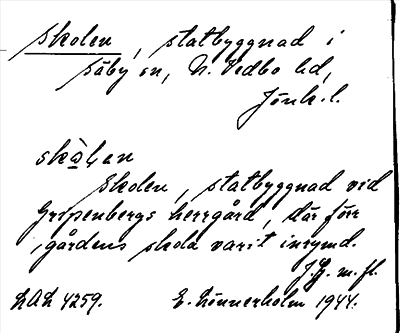 Skolen, statbyggnad i
Säby sn, N. Vedbo hd,
Jönk. l.
skɑ̀ḷan
Skolen, statbyggnad vid
Gripenbergs herrgård, där förr
gårdens skola varit inrymd.
J.G. m. fl.
LAL 4259. E. Lönnerholm 1944.